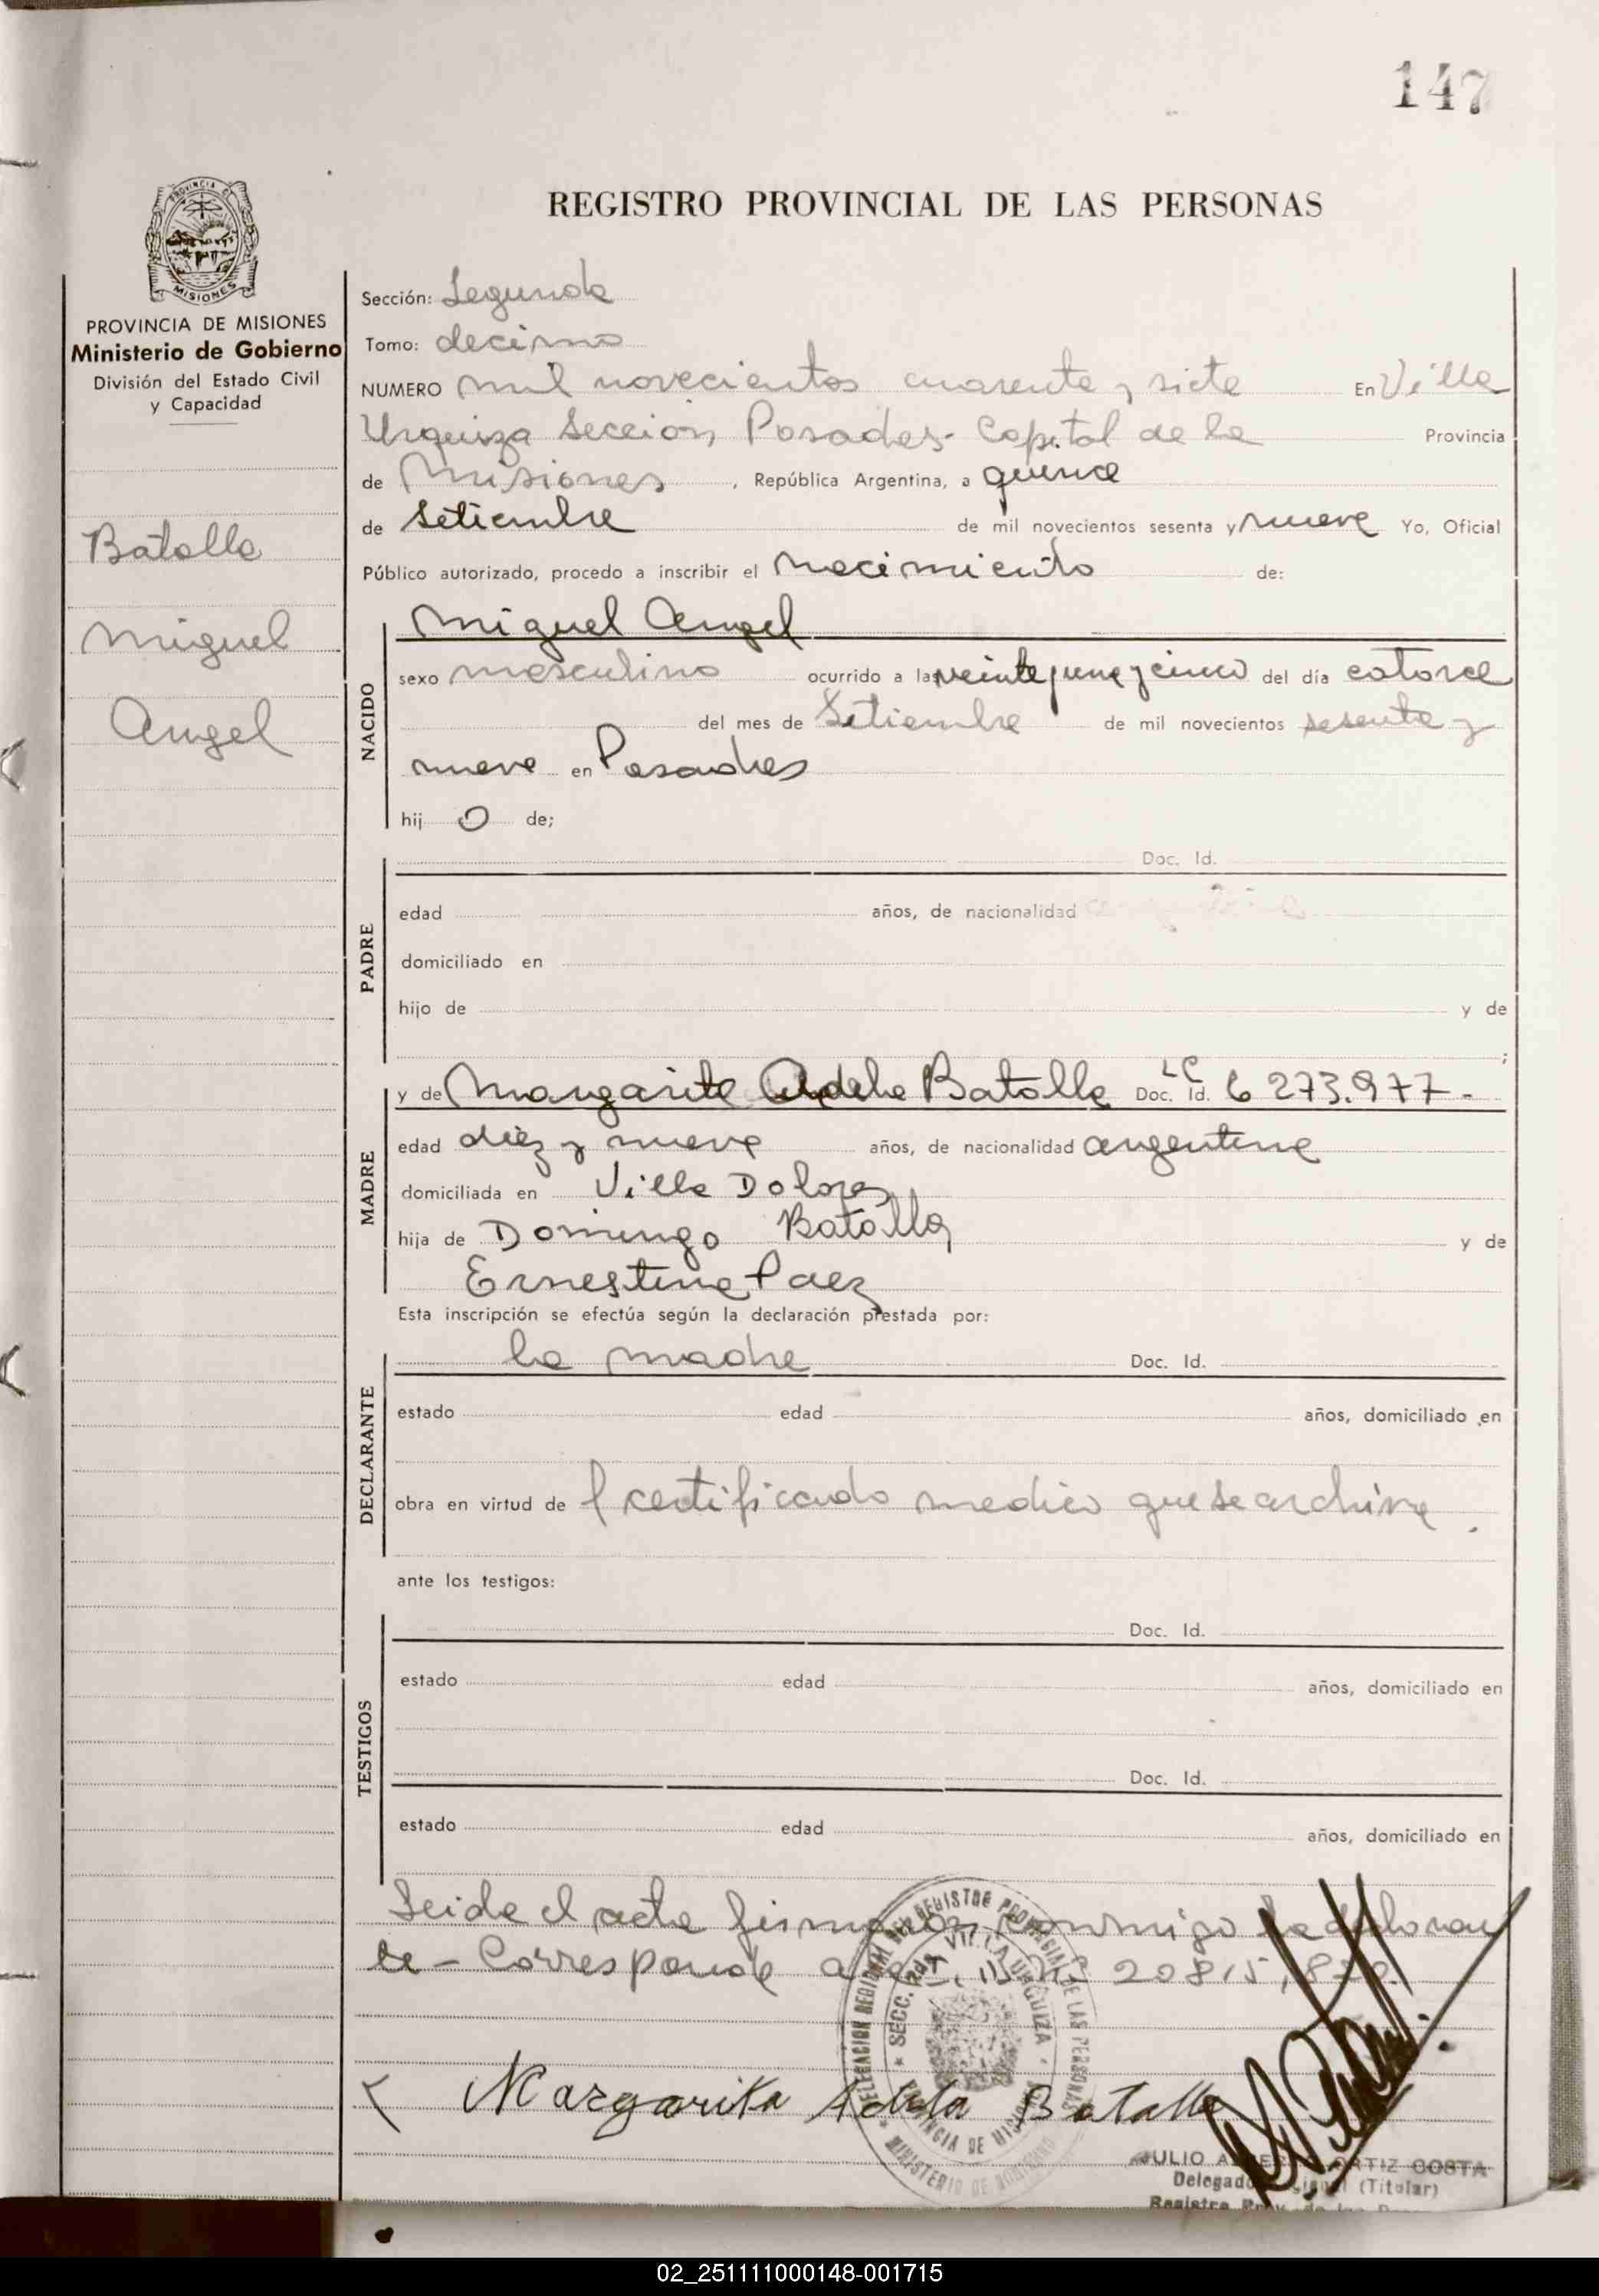 147
REGISTRO PROVINCIAL DE LAS PERSONAS
PROVINCIA DE MISIONES
Ministerio de Gobierno
División del Estado Civil
y Capacidad
Batalla
Miguel
Angel
Sección: Segunda
Tomo: decimo
NUMERO mil novecientos cuarenta y siete En Villa
Urquiza Sección Posadas - Capital de la Provincia
de Misiones, República Argentina, a quince
de Setiembre de mil novecientos sesenta y nueve Yo, Oficial
Público autorizado, procedo a inscribir el nacimiento de:
NACIDO
Miguel Angel
sexo masculino ocurrido a las veinte y una y cinco del día catorce
del mes de Setiembre de mil novecientos sesenta y
nueve en Posadas
hijo de;
PADRE
Doc. Id.
edad años, de nacionalidad
domiciliado en
hijo de y de
;
MADRE
y de Margarita Adela Batalla Doc. Id. LC 6 273.977-
edad diez y nueve años, de nacionalidad argentina
domiciliada en Villa Dolores
hija de Domingo Batalla y de
Ernestina Paez
Esta inscripción se efectúa según la declaración prestada por:
DECLARANTE
la madre Doc. Id.
estado edad años, domiciliado en
obra en virtud de certificado medico que se archiva.
ante los testigos:
TESTIGOS
Doc. Id.
estado edad años, domiciliado en
Doc. Id.
estado edad años, domiciliado en
Leida el acta firma conmigo la declaran
te - Corresponde
Margarita Adela Batalla
DELEGACION REGIONAL DEL REGISTRO PROVINCIAL DE LAS PERSONAS
SECC. 2da. VILLA URQUIZA
PROVINCIA DE MISIONES
MINISTERIO DE GOBIERNO
JULIO ORTIZ COSTA
(Titular)
02_251111000148-001715